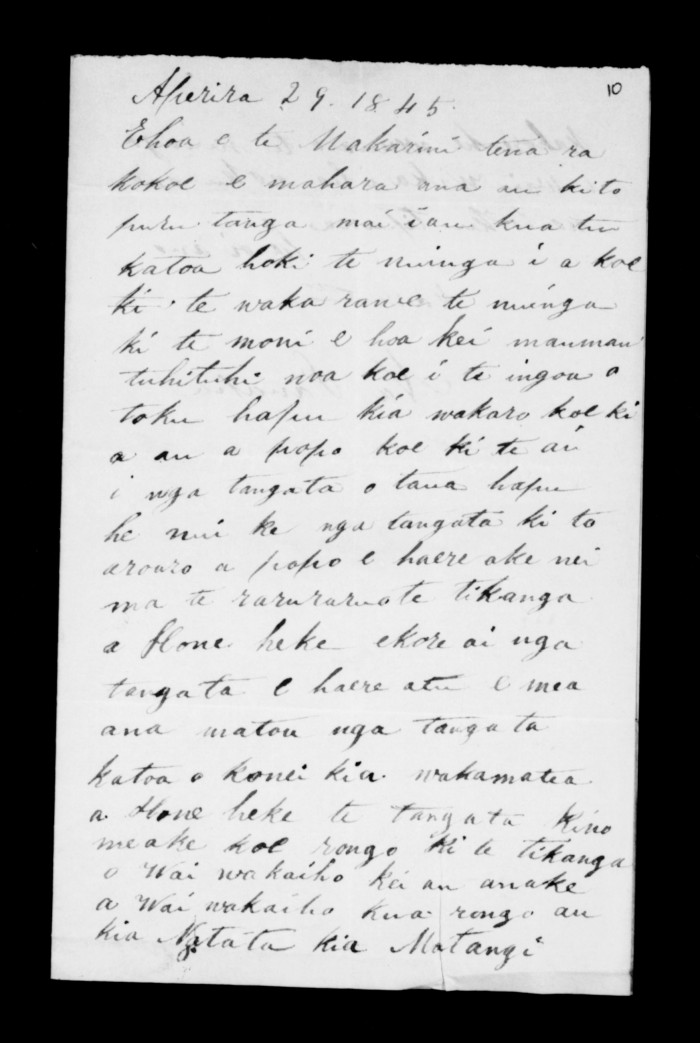 10
Aperira 29. 1845.
Ehoa e te Makarini tena ra
kokoe e mahara ana au ki to
puru tanga mai i au kua tu
katoa hoki te minga i a koe
ki te waka rawe te minga
ki te moni e hoa kei maumau
tuhituhi noa koe i te ingoa o
toku hapu kia wakaro koe ki
a au a popo koe kite ai
i nga tangata o taua hapu
he nui ke nga tangata ki to
aroaro a popo e haere ake nei
ma te raruraruo te tikanga
a Hone heke ekore ai nga
tangata e haere atu e mea
ana matou nga tangata
katoa o konei kia wakamatea
a Hone heke te tangata kino
meake koe rongo ki te tikanga
o Wai wakaiho kei au anake
a Wai wakaiho kua rongo au
kia Ngatata kia Matangi